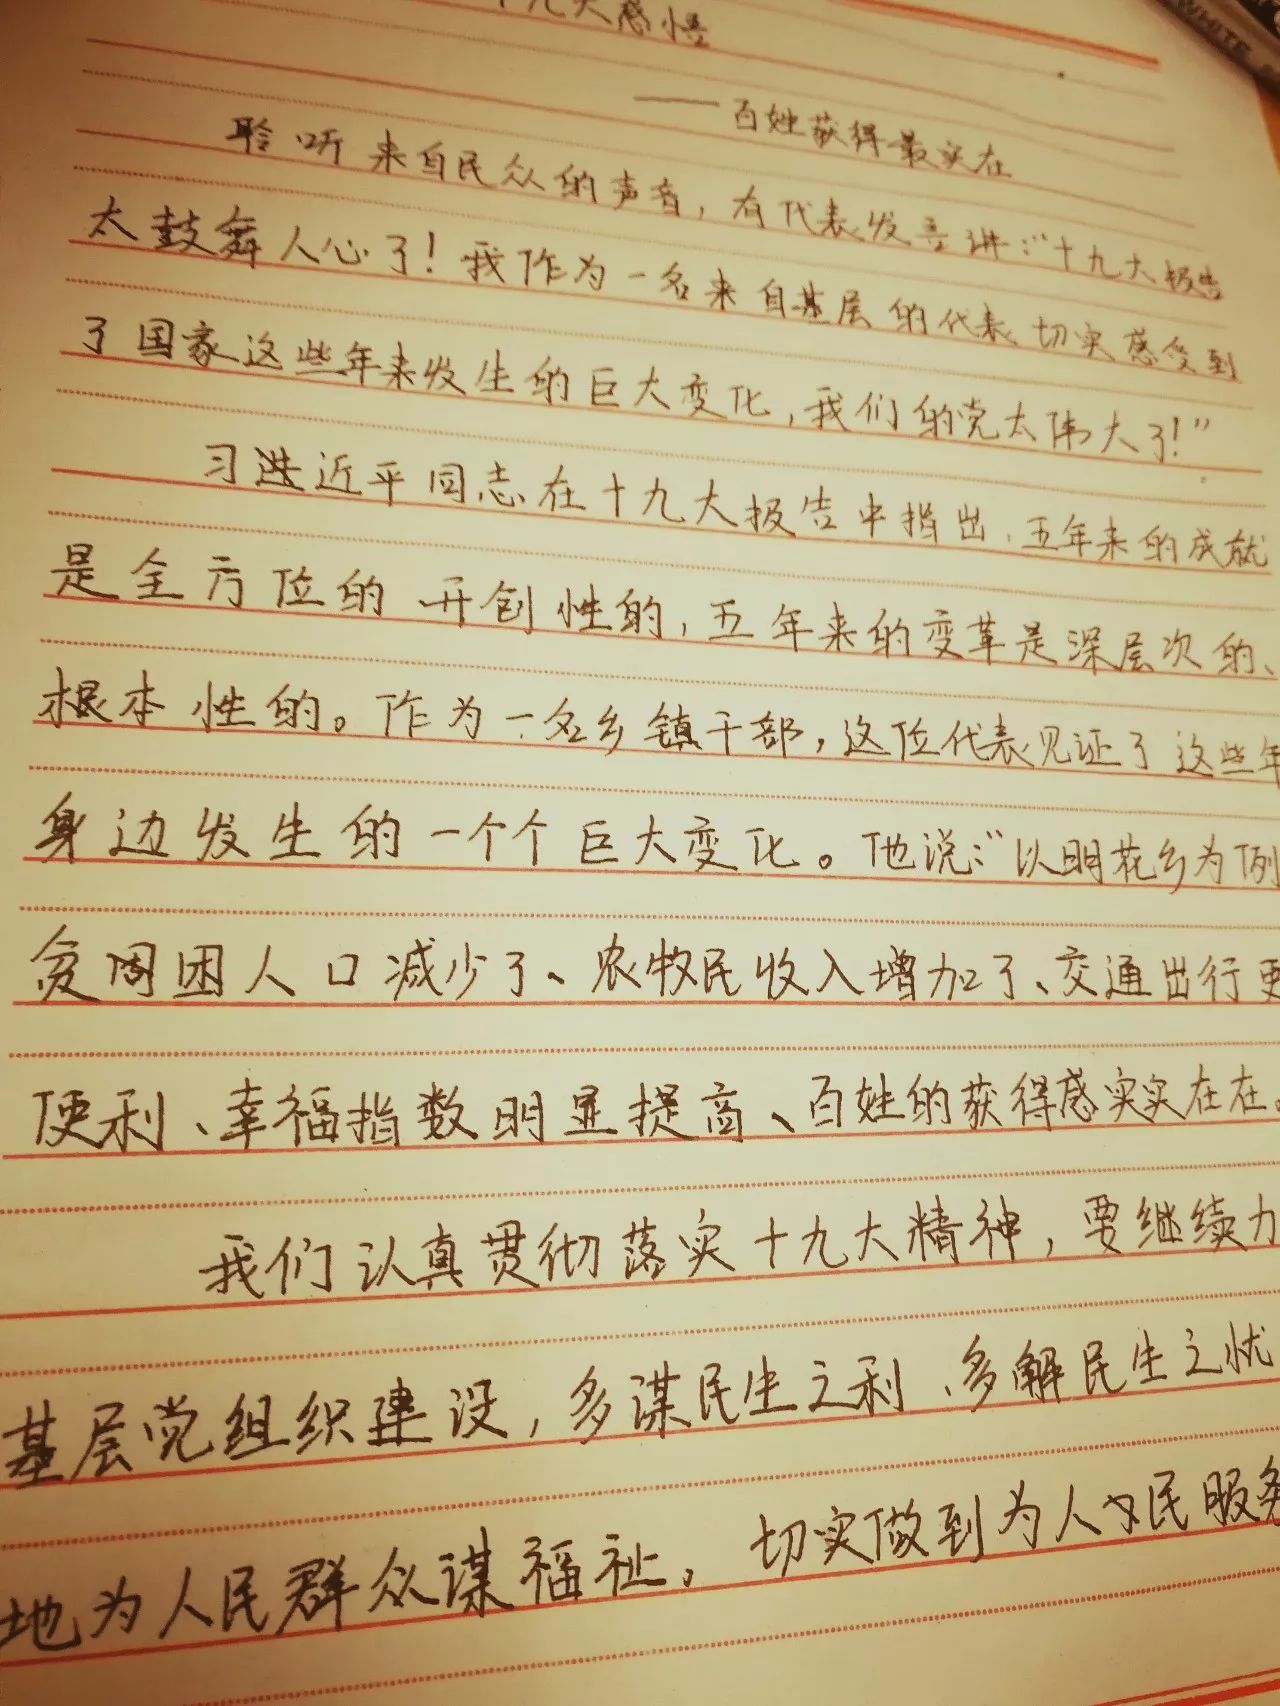 十九大感悟
——百姓获得最实在
聆听来自民众的声音，有代表发言讲:"十九大报告
太鼓舞人心了！我作为一名来自基层的代表切实感受到
了国家这些年来发生的巨大变化，我们的党太伟大了！"
习进近平同志在十九大报告中指出，五年来的成就
是全方位的 开创性的，五年来的变革是深层次的、
根本性的。作为一名乡镇干部，这位代表见证了这些年
身边发生的一个个巨大变化。他说:"以明花乡为例
贫周困人口减少了、农牧民收入增加了、交通出行更
便利、幸福指数明显提高、百姓的获得感实实在在。
我们认真贯彻落实十九大精神，要继续力
基层党组织建设，多谋民生之利、多解民生之忧
地为人民群众谋福祉。切实做到为人民服务
WHITE